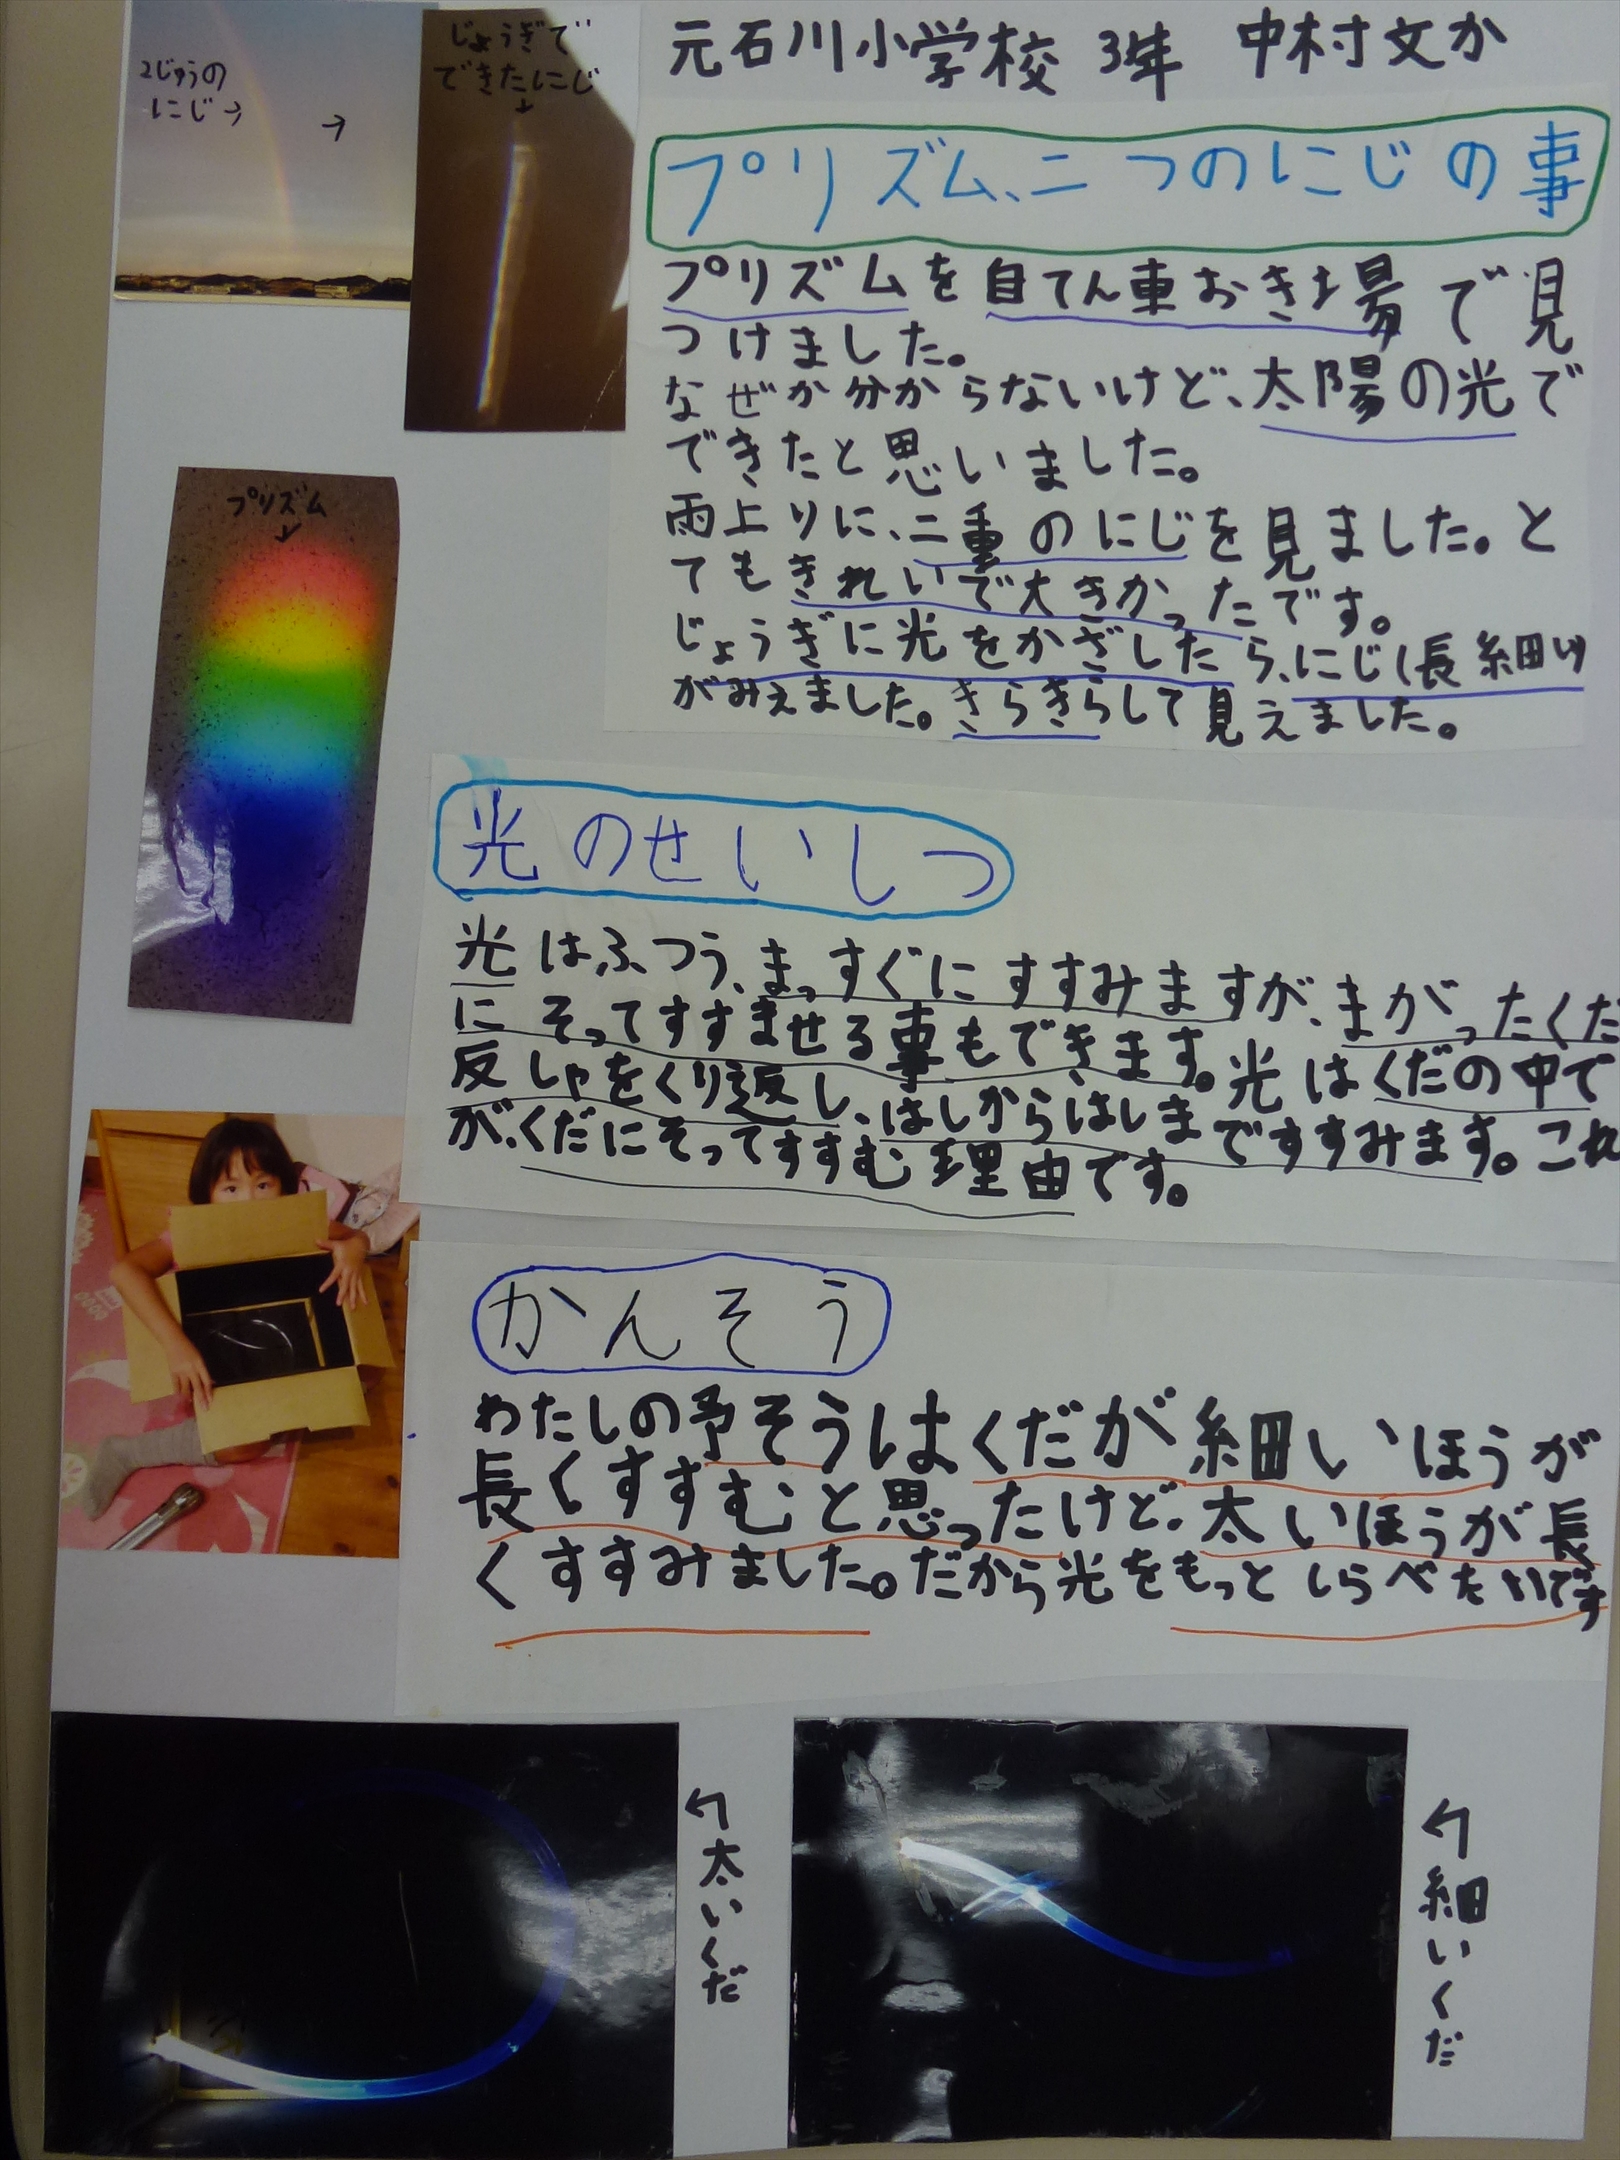 元石川小学校 3年 中村文か
2じゅうの
にじ→ →
じょうぎで
できたにじ
↓
プリズム、二つのにじの事
プリズムを自てん車おき場で見
つけました。
なぜか分からないけど、太陽の光で
できたと思いました。
雨上りに、二重のにじを見ました。と
てもきれいで大きかったです。
じょうぎに光をかざしたら、にじ(長細い)
がみえました。きらきらして見えました。
プリズム
↓
光のせいしつ
光はふつう、まっすぐにすすみますが、まがったくだ
にそってすすませる事もできます。光はくだの中で
反しゃをくり返し、はしからはしまですすみます。これ
が、くだにそってすすむ理由です。
かんそう
わたしの予そうはくだが細いほうが
長くすすむと思ったけど、太いほうが長
くすすみました。だから光をもっとしらべたいです
↰太いくだ
↰細いくだ